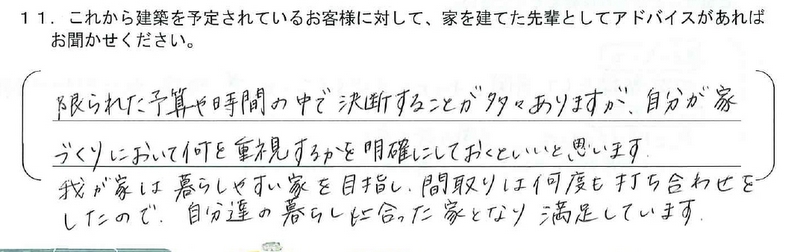 １１．これから建築を予定されているお客様に対して、家を建てた先輩としてアドバイスがあれば
お聞かせください。
限られた予算や時間の中で決断することが多々ありますが、自分が家
づくりにおいて何を重視するかを明確にしておくといいと思います.
我が家は暮らしやすい家を目指し、間取りは何度も打ち合わせを
したので、自分達の暮らしに合った家となり満足しています.